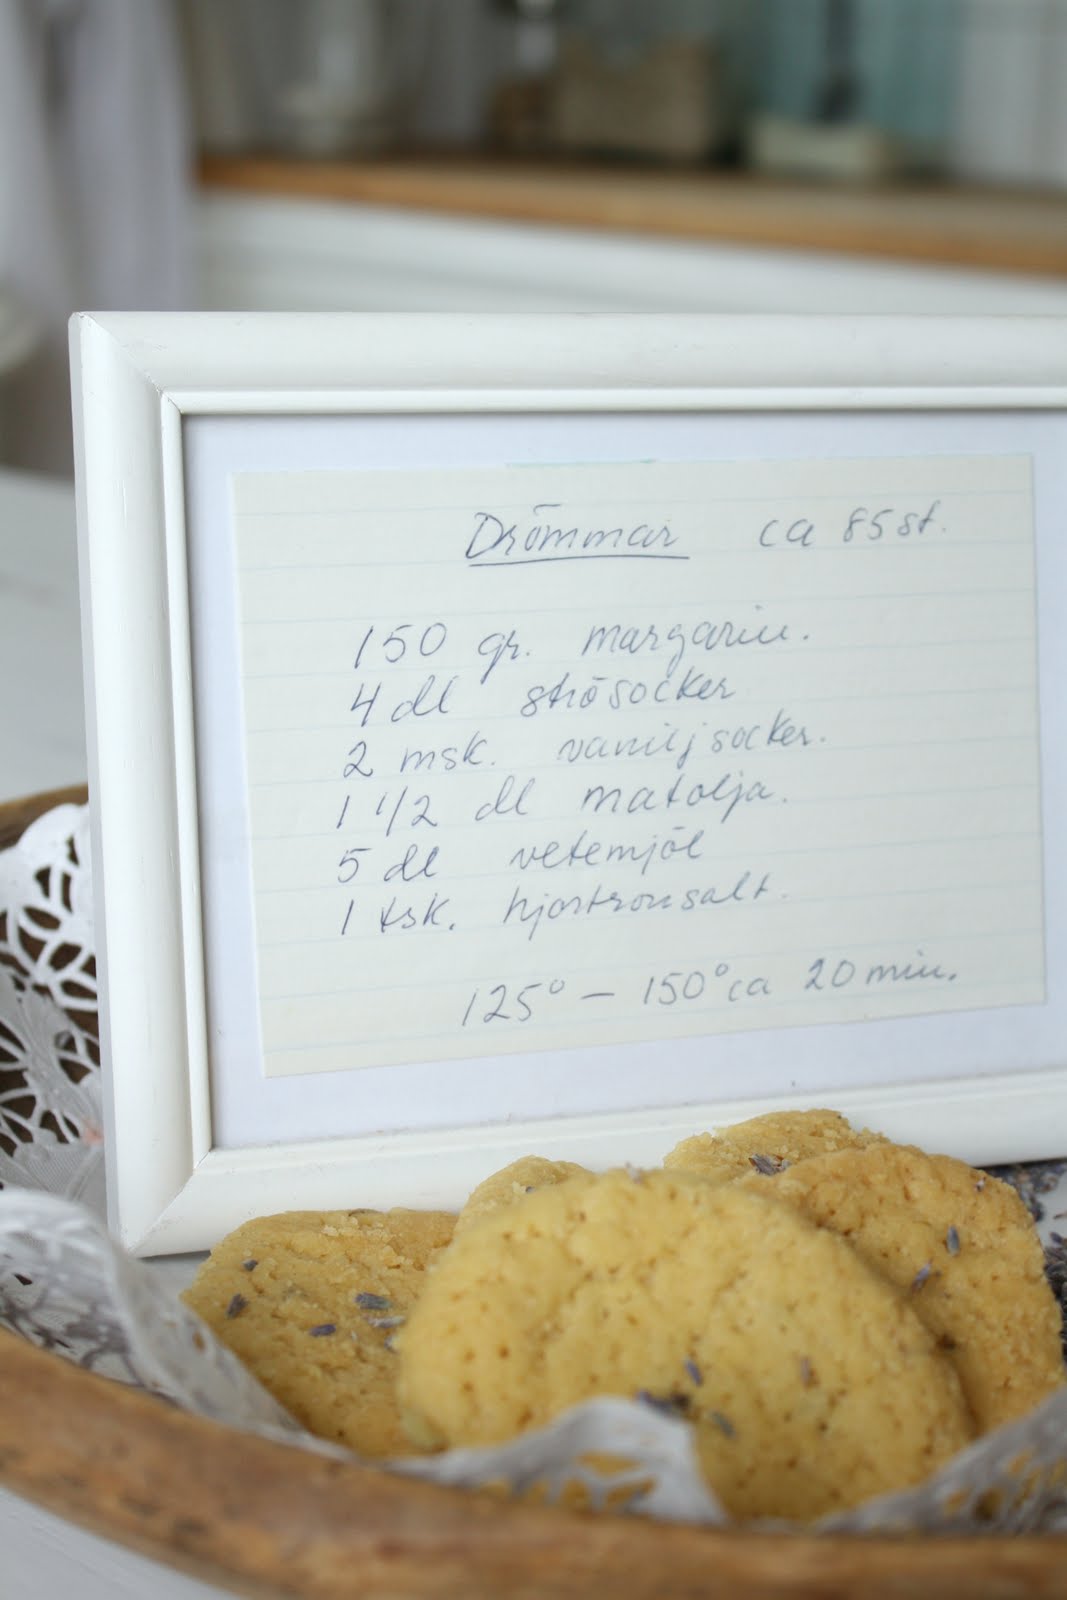 Drömmar ca 85 st.
150 gr. margarin.
4 dl strösocker
2 msk. vaniljsocker.
1 1/2 dl matolja.
5 dl vetemjöl
1 tsk. hjortronsalt.
125° – 150° ca 20 min.